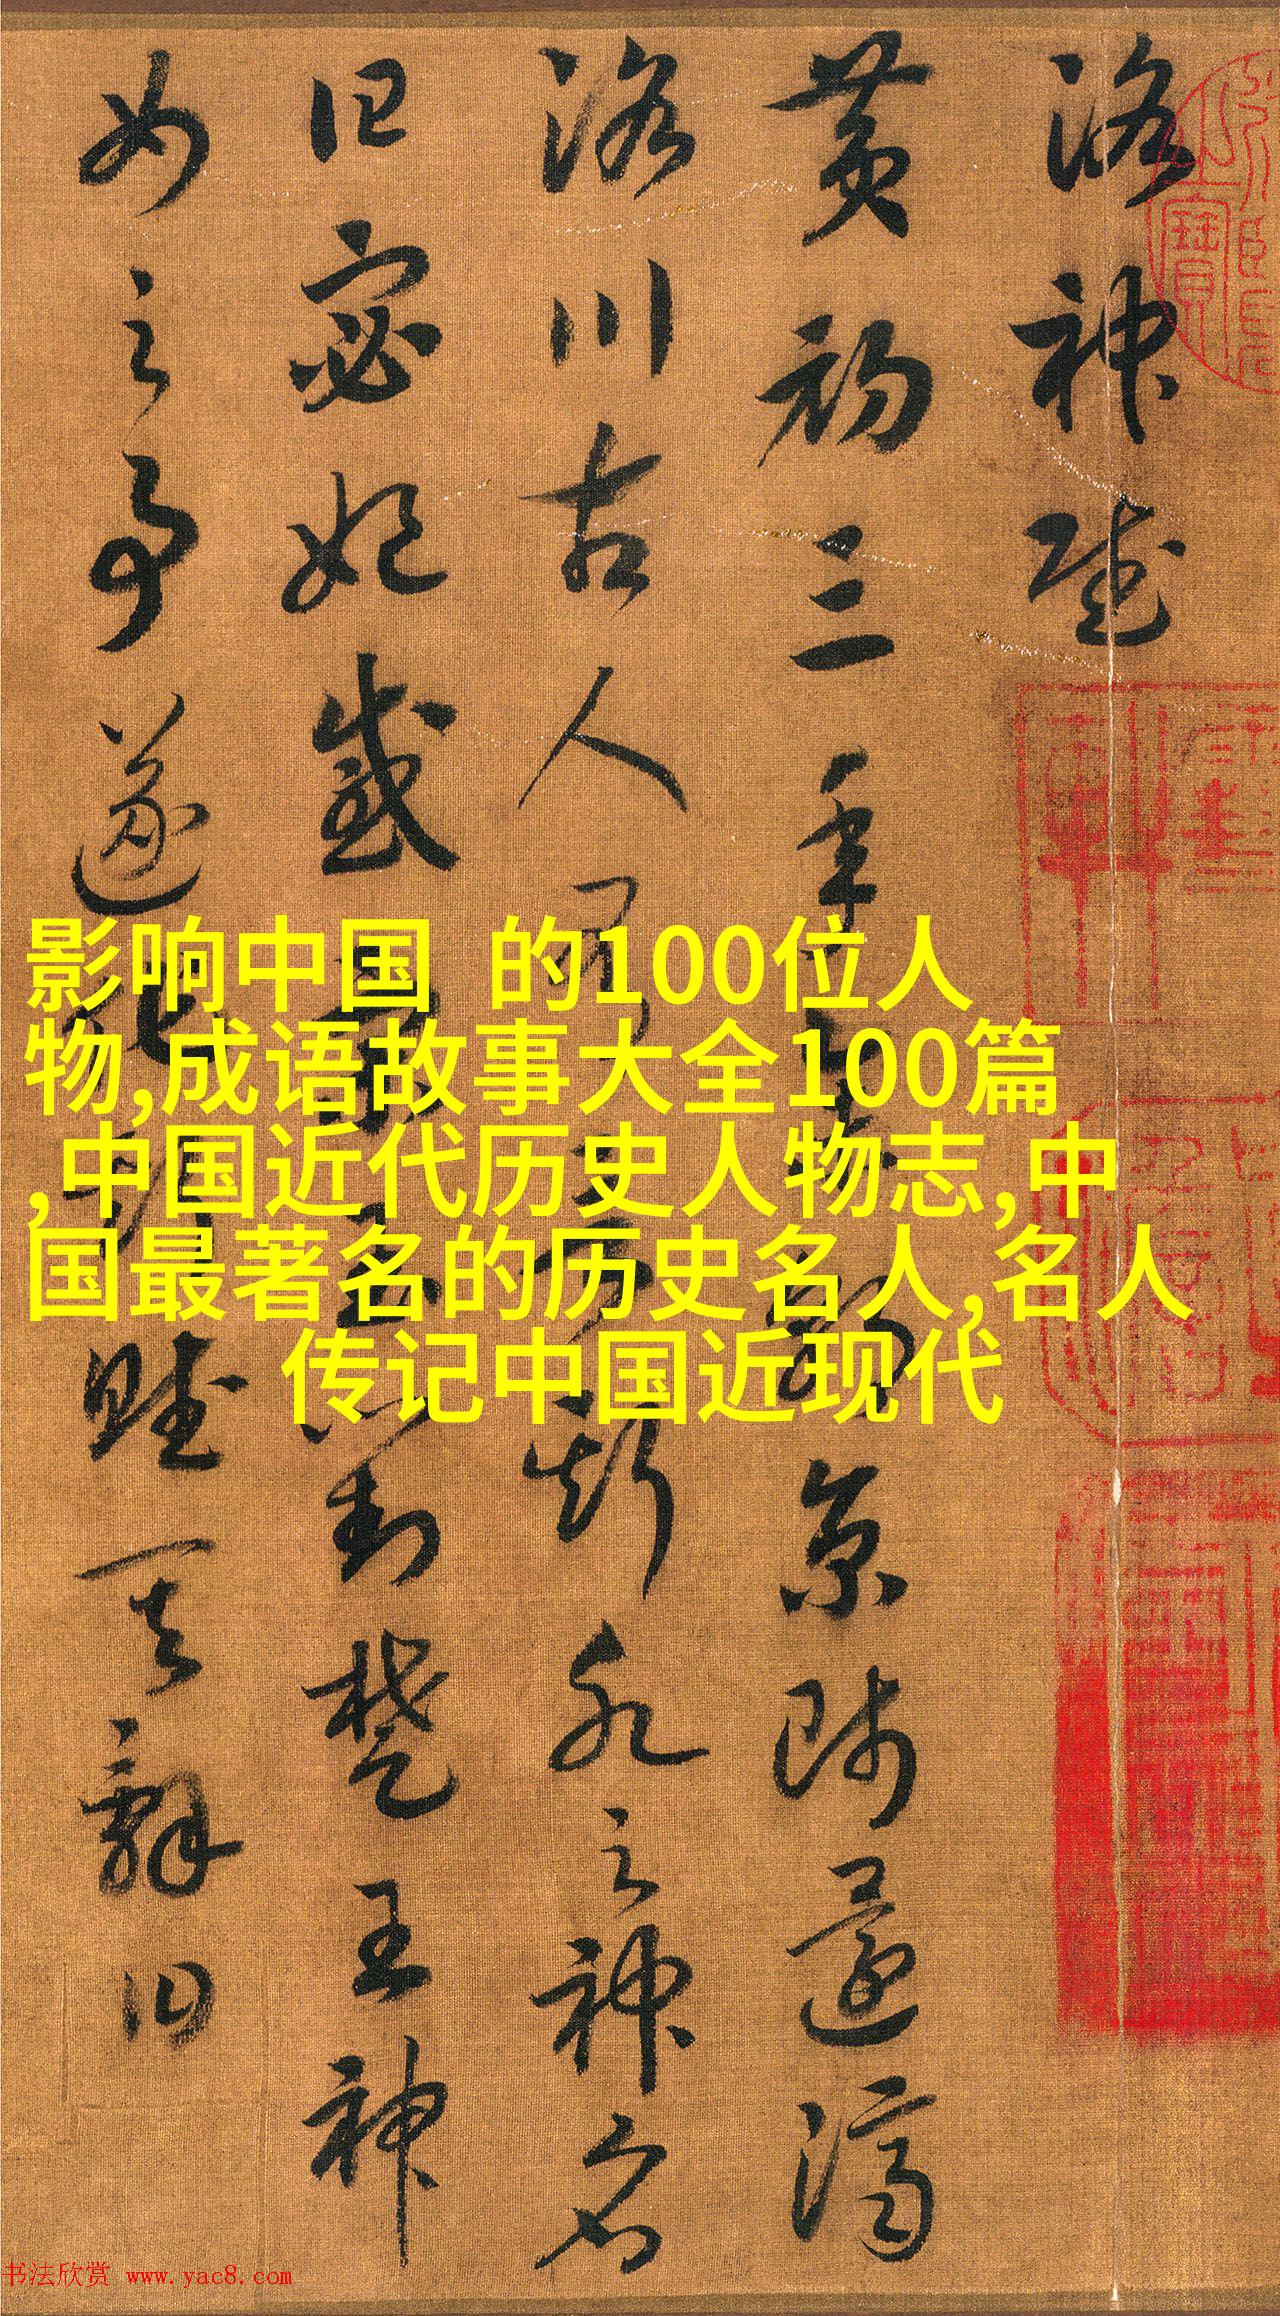 洛神賦
黃初三年余朝京師還濟
洛川古人有言斯水之神名
曰宓妃感宋玉對楚王神
女之事遂作斯賦其辭曰
影响中国 的100位人
物,成语故事大全100篇
,中国近代历史人物志,中
国最著名的历史名人,名人
传记中国近现代
书法欣赏 www.yac8.com